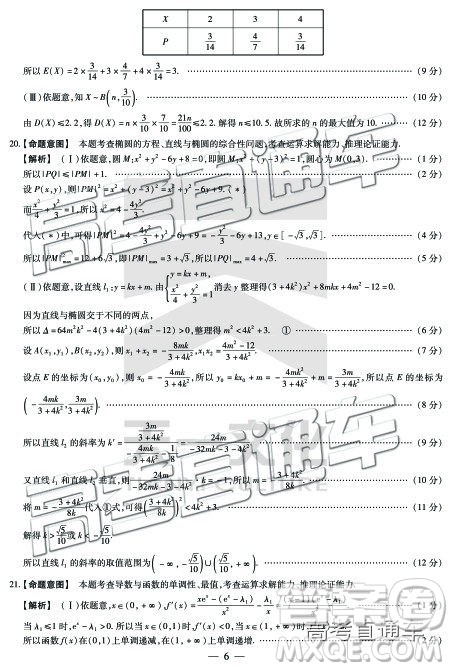 X 2 3 4
P 3/14 4/7 3/14
所以 E(X)=2×3/14+3×4/7+4×3/14=3. (9 分)
(Ⅲ)依题意,知 X~B(n,3/10), (10 分)
由 D(X)≤2.2,得 D(X)=n×3/10×7/10=21n/100≤2.2. 解得 n≤10.5. 故所求的 n 的最大值为 10. (12 分)
20.【命题意图】 本题考查椭圆的方程、直线与椭圆的综合性问题,考查运算求解能力、推理论证能力.
【解析】 (Ⅰ)依题意,圆 M:x²+y²-6y+8=0,即圆 M:x²+(y-3)²=1,圆心为 M(0,3). (1 分)
所以|PQ|≤|PM|+1. (2 分)
设 P(x,y),则|PM|²=x²+(y-3)²=x²+y²-6y+9. (*)
而x²/4+y²/3=1,所以 x²=4-4y²/3.
代入(*)中,可得|PM|²=4-4y²/3+y²-6y+9=-y²/3-6y+13,y∈[-√3,√3]. (4 分)
所以|PM|²max=12+6√3,即|PM|max=3+√3,所以|PQ|max=4+√3. (5 分)
(Ⅱ)依题意,设直线 l₁:y=kx+m. 由{y=kx+m, x²/4+y²/3=1,消去 y 整理得(3+4k²)x²+8mkx+4m²-12=0.
因为直线与椭圆交于不同的两点,
所以 Δ=64m²k²-4(3+4k²)(4m²-12)>0,整理得 m²<4k²+3. ① (6 分)
设 A(x₁,y₁),B(x₂,y₂),则 x₁+x₂=-8mk/(3+4k²),x₁x₂=(4m²-12)/(3+4k²).
设点 E 的坐标为(x₀,y₀),则 x₀=-4mk/(3+4k²),所以 y₀=kx₀+m=-4mk²/(3+4k²)+m=3m/(3+4k²),所以点 E 的坐标为
(-4mk/(3+4k²),3m/(3+4k²)). (8 分)
(9 分)
又直线 l₁ 和直线 l₂ 垂直,则 (10 分)
将 m=-(3+4k²)/8k 代入①式,可得((3+4k²)/8k)²<4k²+3.
解得 k>√5/10或 k<-√5/10.
所以直线 l₁ 的斜率的取值范围为(-∞,-√5/10)∪(√5/10,+∞). (12 分)
21.【命题意图】 本题考查导数与函数的单调性、最值,考查运算求解能力、推理论证能力.
【解析】 (Ⅰ)依题意,x∈(0,+∞),
当 λ₁≤1时,eˣ-λ₁>0.
所以函数 f(x)在(0,1)上单调递减,在(1,+∞)上单调递增.
— 6 —
高考直通车